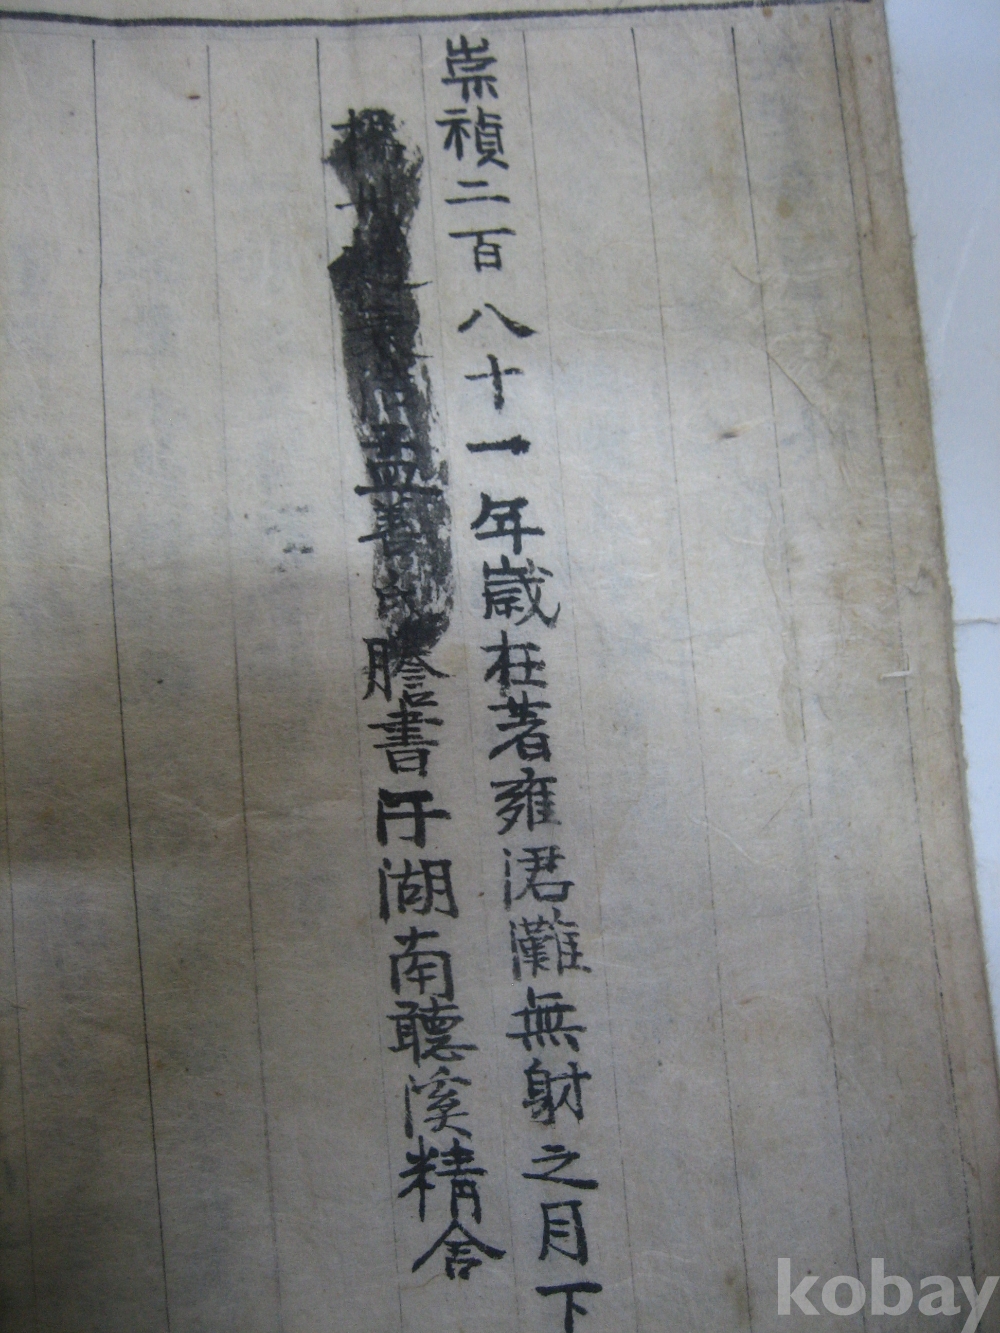 崇禎二百八十一年歲在著雍涒灘無射之月下
孟善
謄書于湖南聽溪精舍
kobay